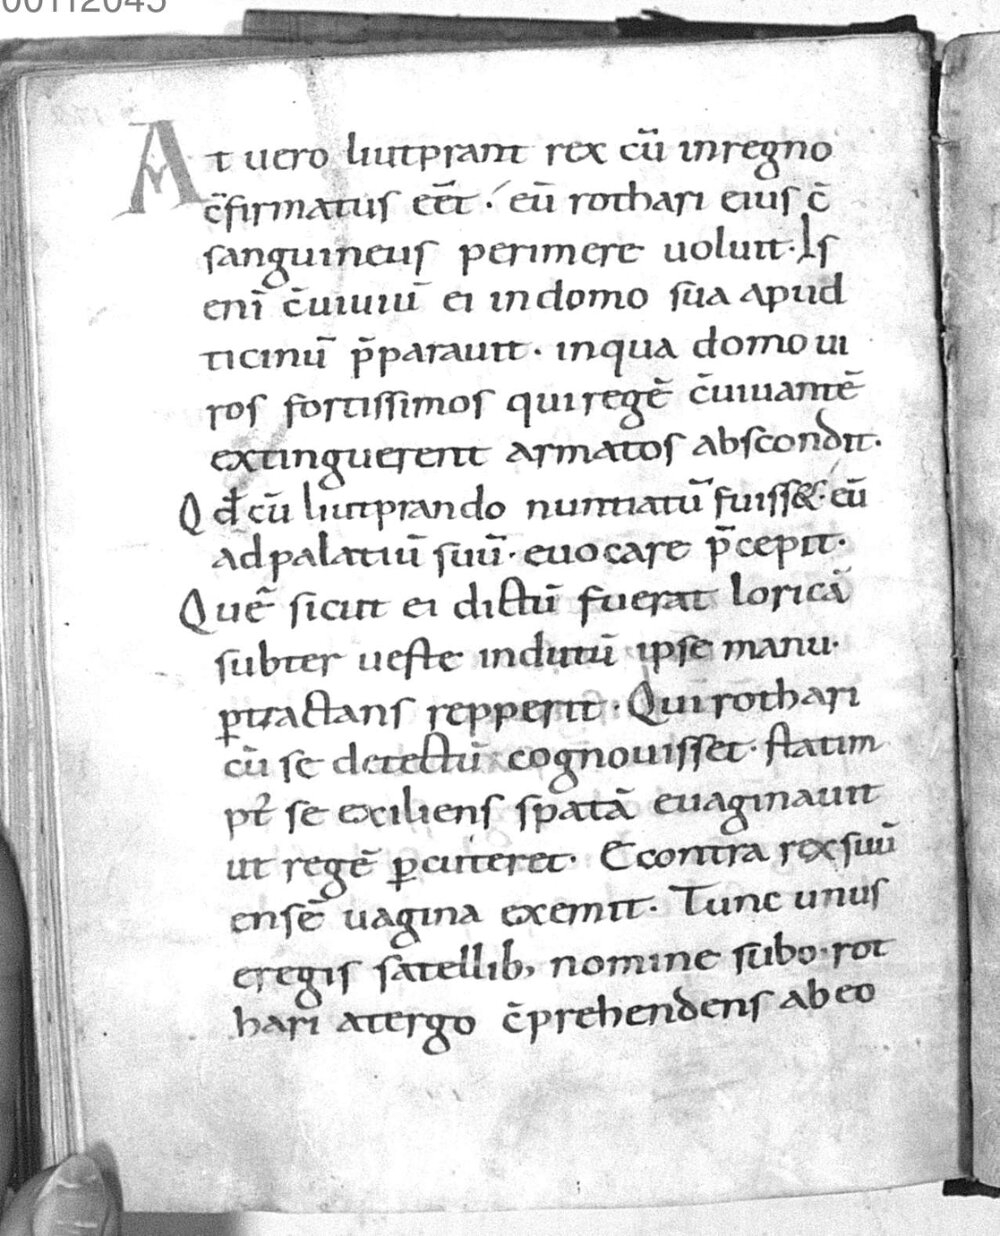 00112045
At uero liutprant rex cū inregno
c̄firmatus eēt· eū rothari eius c̄
sanguineus perimere uoluit· Is
enī c̄uiuiū ei indomo sūa apud
ticinū p̄parauit· inqua domo ui
ros fortissimos qui regē c̄uiuantē
extinguerent armatos abscondit·
Qd̄ cū liutprando nuntiatū fuiss&· eū
adpalatiū suū· euocare p̄cepit·
Quē sicut ei dictū fuerat loricā
subter ueste indutū ipse manu·
ꝑtractans repperit· Qui rothari
cū se detectū cognouisset· statim
pt̄ se exiliens spatā euaginauit
ut regē ꝑcuteret· Econtra rex suū
ensē uagina exemit· Tunc unus
eregis satellib; nomine subo· rot
hari atergo c̄prehendens abeo